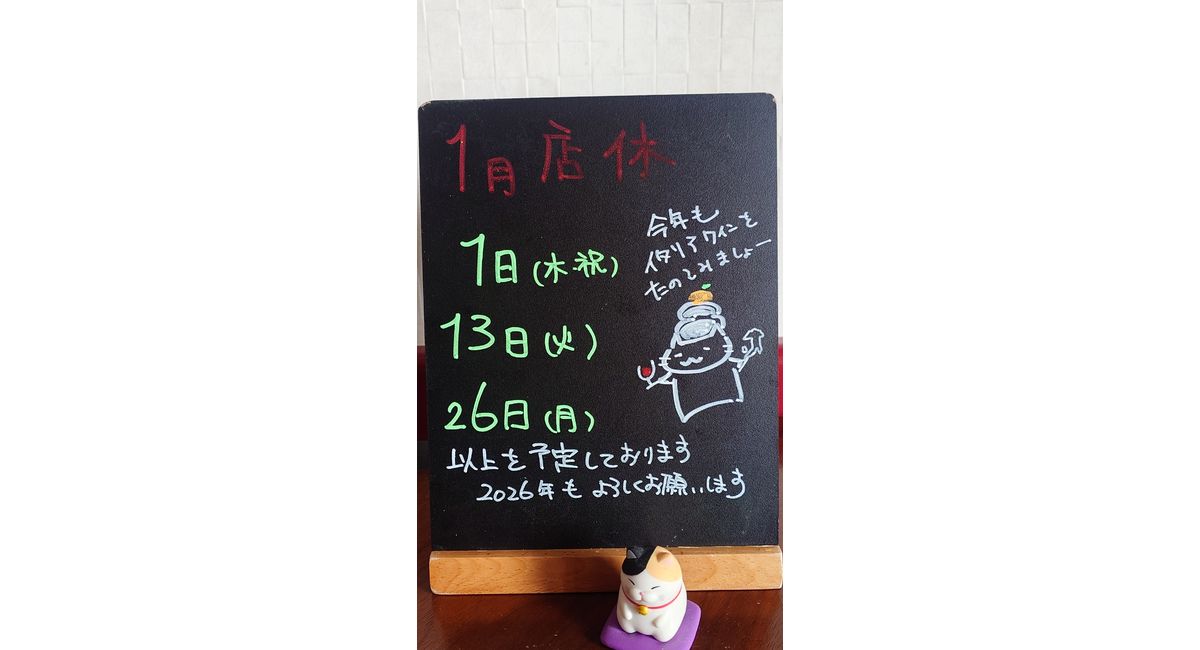 1月 店休
1日(木・祝)
13日(火)
26日(月)
今年も
イタリアワインを
たのしみましょー
以上を予定しております
2026年もよろしくお願いします